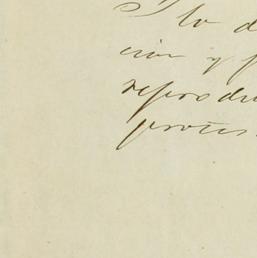 I lo d
cion y p
reprodu
protes